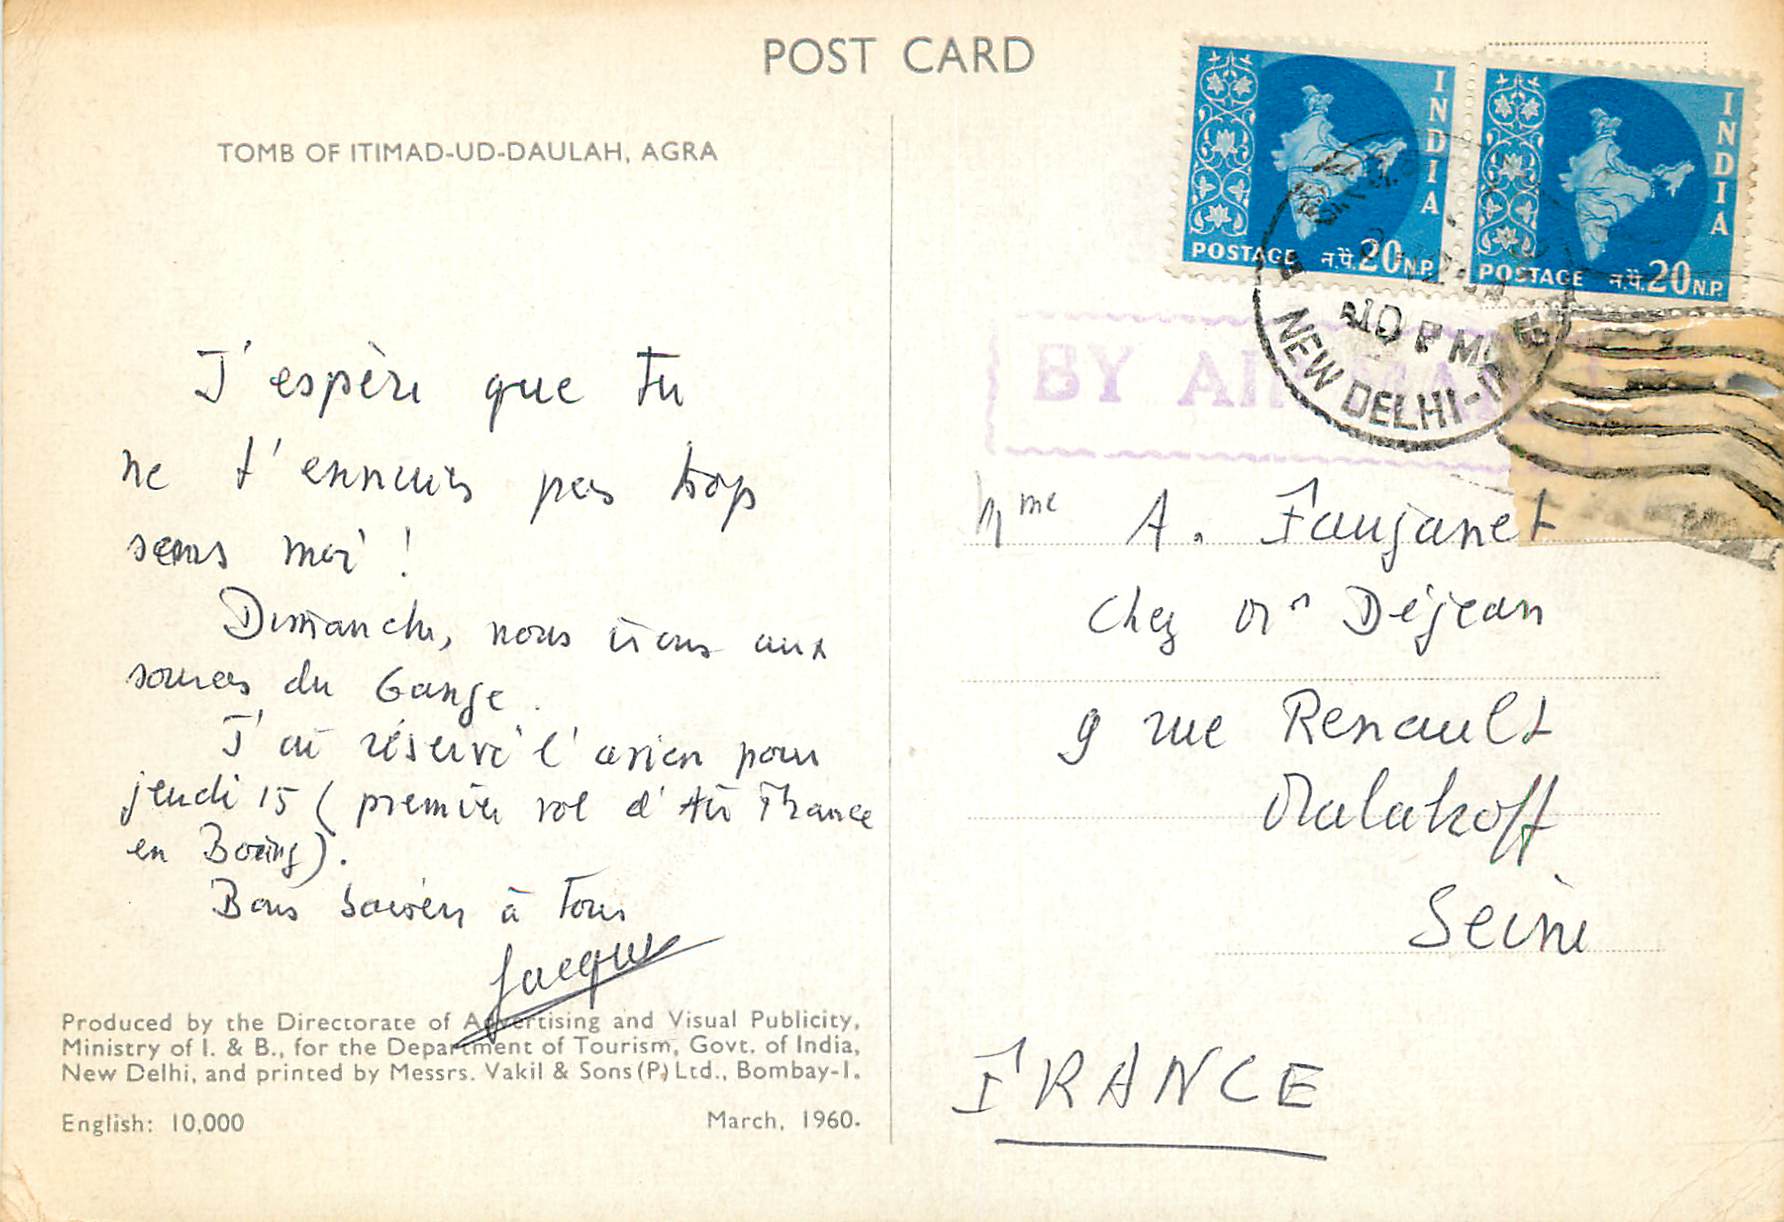 POST CARD
TOMB OF ITIMAD-UD-DAULAH, AGRA
J'espère que tu
ne t'ennuies pas trop
sans moi !
Dimanche, nous irons aux
sources du Gange.
J'ai réservé l'avion pour
jeudi 15 (premier vol d'Air France
en Boeing).
Bons baisers à tous
Jacques
Produced by the Directorate of Advertising and Visual Publicity,
Ministry of I. & B., for the Department of Tourism, Govt. of India,
New Delhi, and printed by Messrs. Vakil & Sons (P) Ltd., Bombay-1.
English: 10,000
March, 1960.
INDIA
POSTAGE न.पै. 20 N.P.
INDIA
POSTAGE न.पै. 20 N.P.
10 PM
NEW DELHI-
BY AIR MAIL
Mme A. Faujanet
chez Mr Déjean
9 rue Renault
Malakoff
Seine
FRANCE